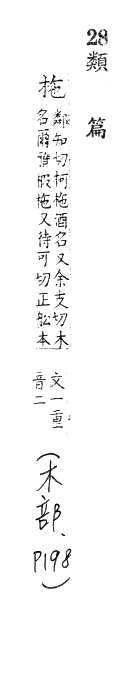 28類篇
柂
鄰知切柯柂酒名又余支切木
名爾雅椴柂又待可切正舩本
文一重
音二
(木部、P198)